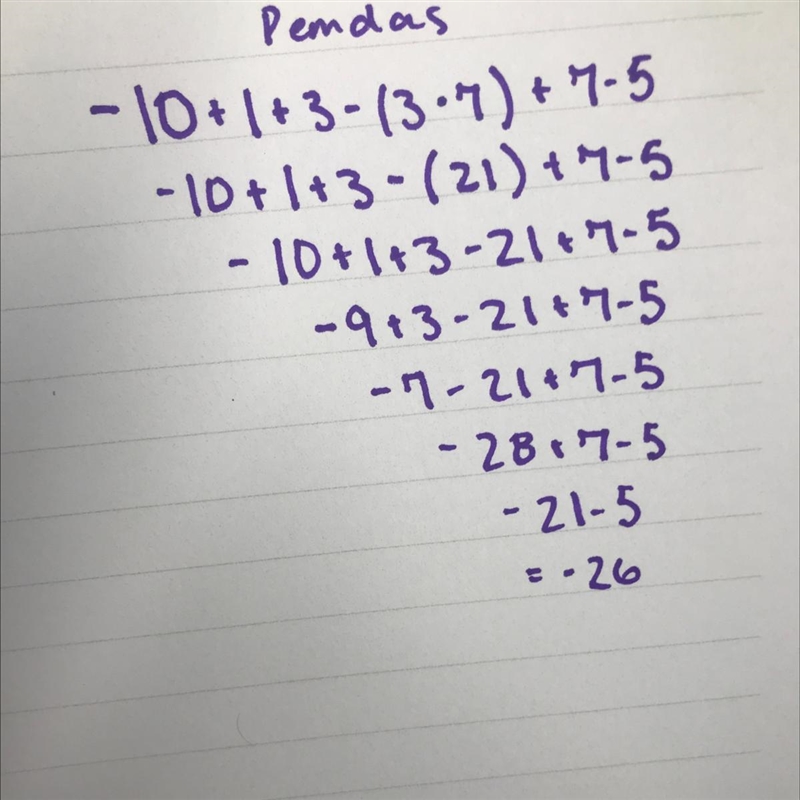 Pemdas
-10+1+3-(3·7)+7-5
-10+1+3-(21)+7-5
-10+1+3-21+7-5
-9+3-21+7-5
-7-21+7-5
-28+7-5
-21-5
=-26